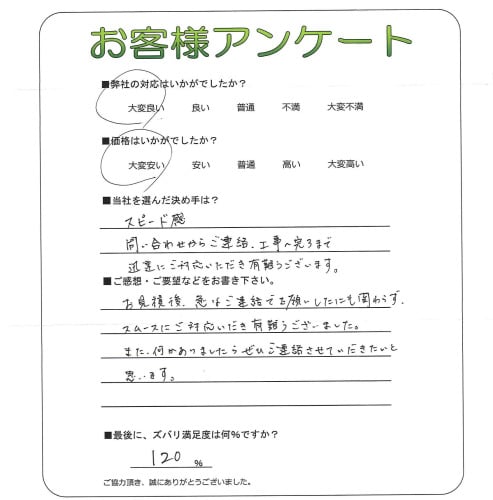 お客様アンケート
■弊社の対応はいかがでしたか?
大変良い 良い 普通 不満 大変不満
■価格はいかがでしたか?
大変安い 安い 普通 高い 大変高い
■当社を選んだ決め手は?
スピード感
問い合わせからご連絡、工事へ完了まで
迅速にご対応いただき有難うございます。
■ご感想・ご要望などをお書き下さい。
お見積後、急なご連絡でお願いしたにも関わらず、
スムースにご対応いだき有難うございました。
また、何かありましたらぜひご連絡させていだきたいと
思います。
■最後に、ズバリ満足度は何%ですか?
120 %
ご協力頂き、誠にありがとうございました。